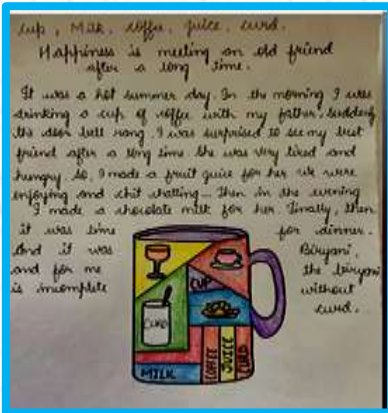 cup, Milk, coffee, juice, curd.
Happiness is meeting an old friend
after a long time.
It was a hot summer day. In the morning I was
drinking a cup of coffee with my father. suddenly
the door bell rang. I was surprised to see my best
friend after a long time. She was very tired and
hungry. So, I made a fruit juice for her we were
enjoying and chit chatting... Then in the evening
I made a chocolate milk for her. Finally, then
it was time for dinner.
And it was Biryani,
and for me the biryani
is incomplete without
curd.
CUP
CURD
MILK
COFFEE
JUICE
CURD